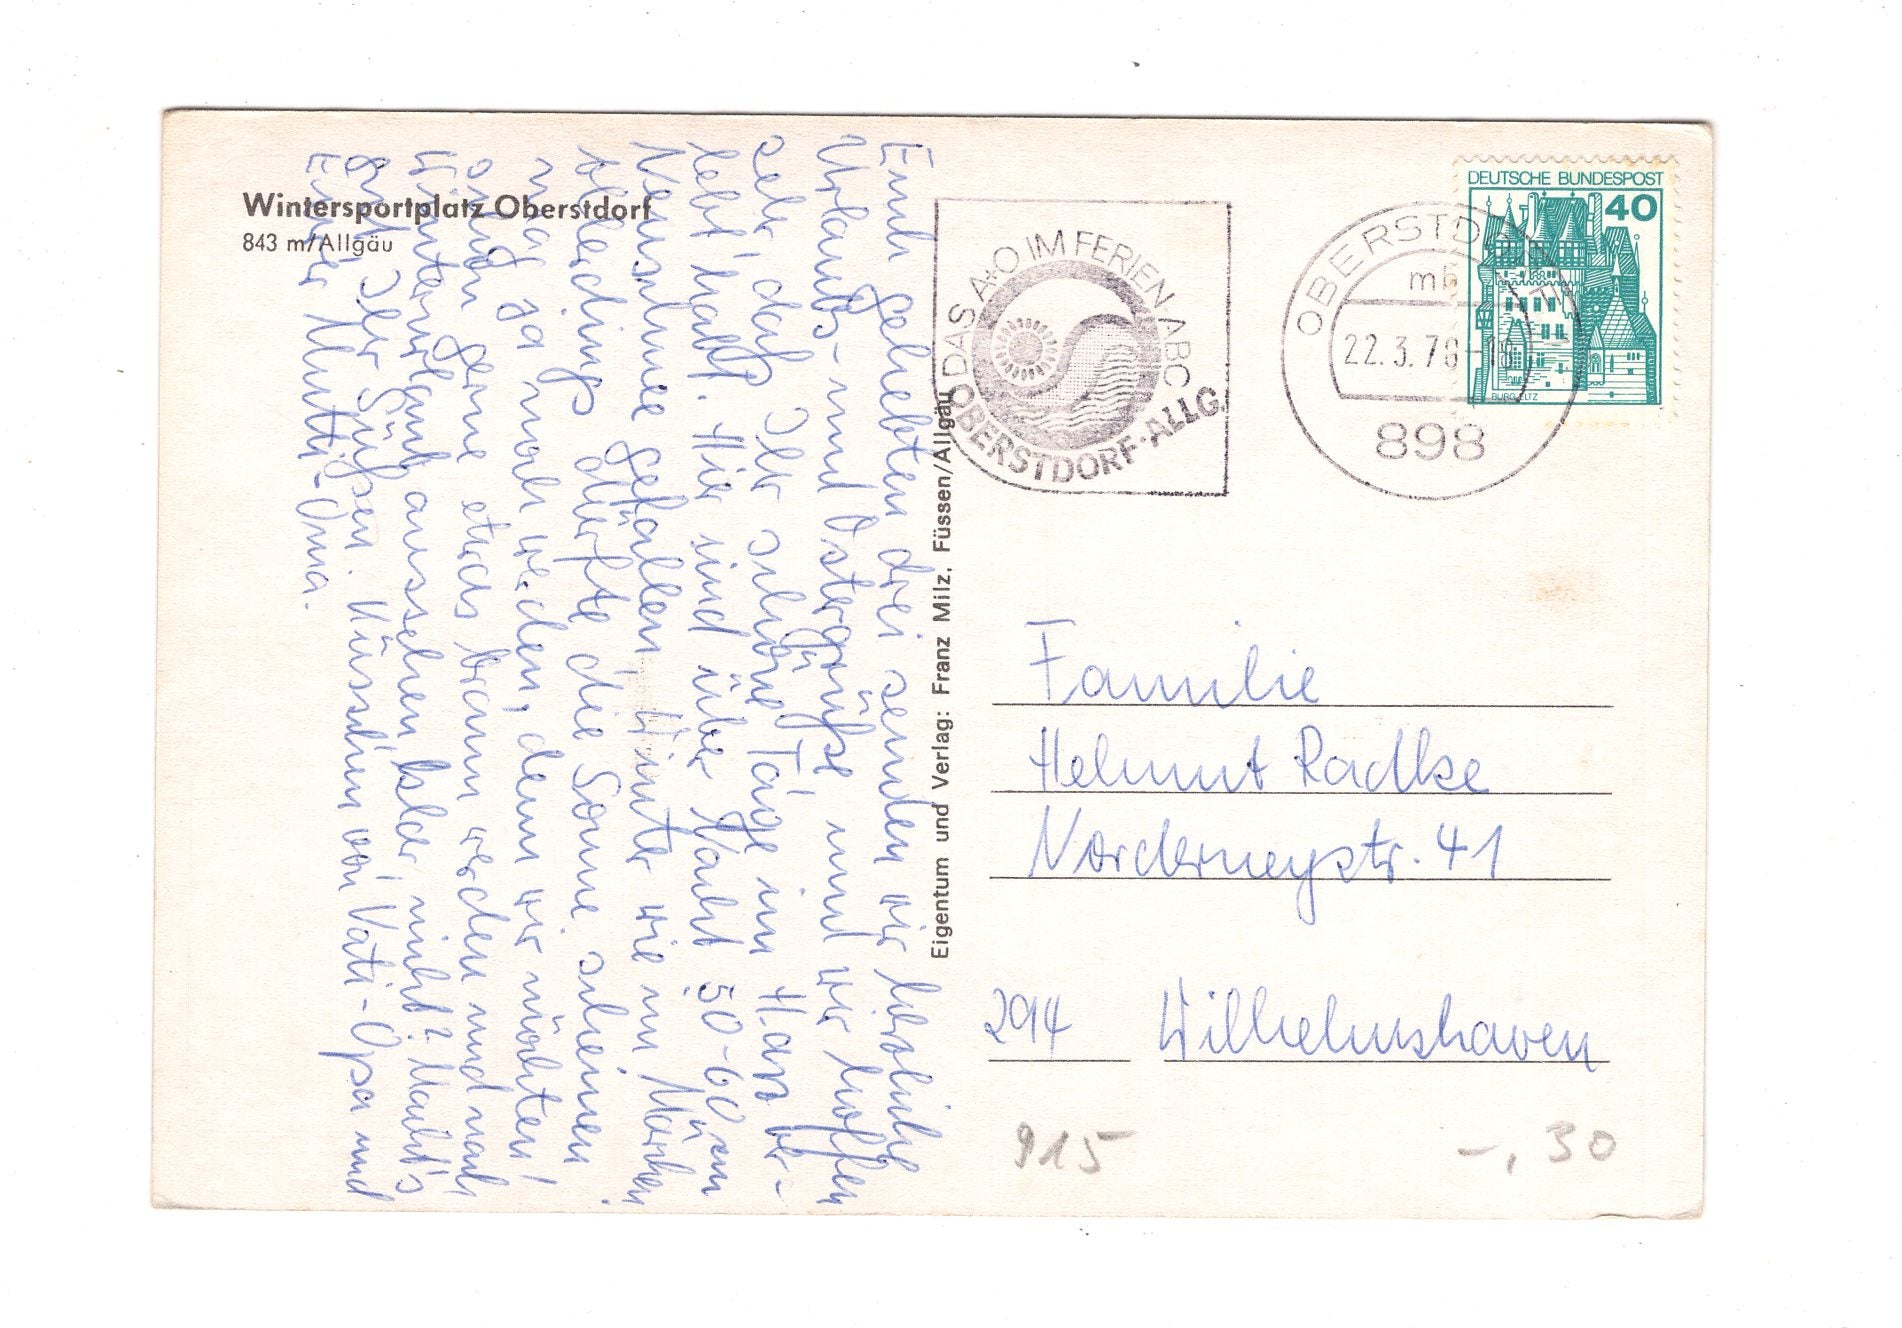 Wintersportplatz Oberstdorf
843 m/Allgäu
Euch geliebten drei senden wir herzliche
Urlaubs- und Ostergrüße und wir hoffen
sehr, daß Ihr schöne Tage im Harz ver-
lebt habt. Hier sind über Nacht 50-60 cm
Neuschnee gefallen, Winter wie im Märchen
allerdings dürfte die Sonne scheinen.
Na ja mal werden, denn wir möchten!
auch gerne etwas braun werden und nach
Winterurlaub aussehen, nicht? Macht's
gut Ihr Süßen. Küsschen von Vati-Opa und
Eurer Mutti-Oma.
Eigentum und Verlag: Franz Milz, Füssen/Allgäu
DAS A+O IM FERIEN-ABC
OBERSTDORF·ALLG.
OBERSTDORF
mb
22.3.78-18
898
DEUTSCHE BUNDESPOST
40
BURG ELTZ
Familie
Helmut Radtke
Norderneystr. 41
294 Wilhelmshaven
915
-,30